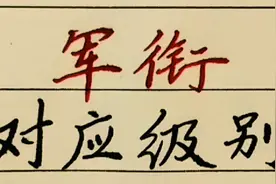 军衔
对应级别